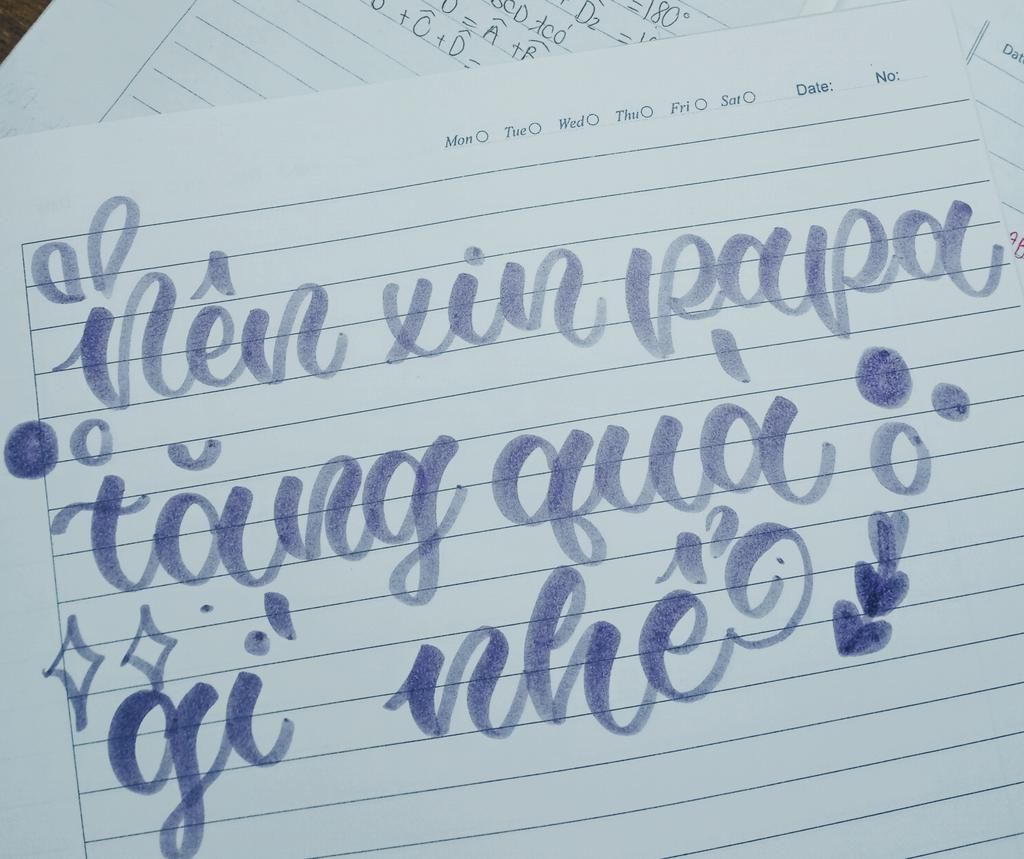 D + Ĉ + D̂ = Â + B̂
D₂ = 180°
Mon Tue Wed Thu Fri Sat Date: No:
nên xin papa
tăng quà
gì nhể